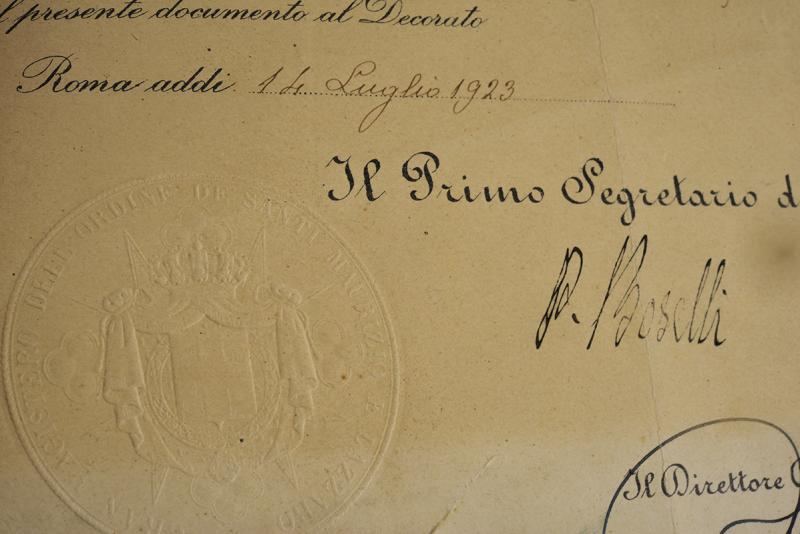 l presente documento al Decorato
Roma addì 14 Luglio 1923
Il Primo Segretario d
P. Boselli
GRAN MAGISTERO DELL'ORDINE DE' SANTI MAURIZIO E LAZZARO
Il Direttore